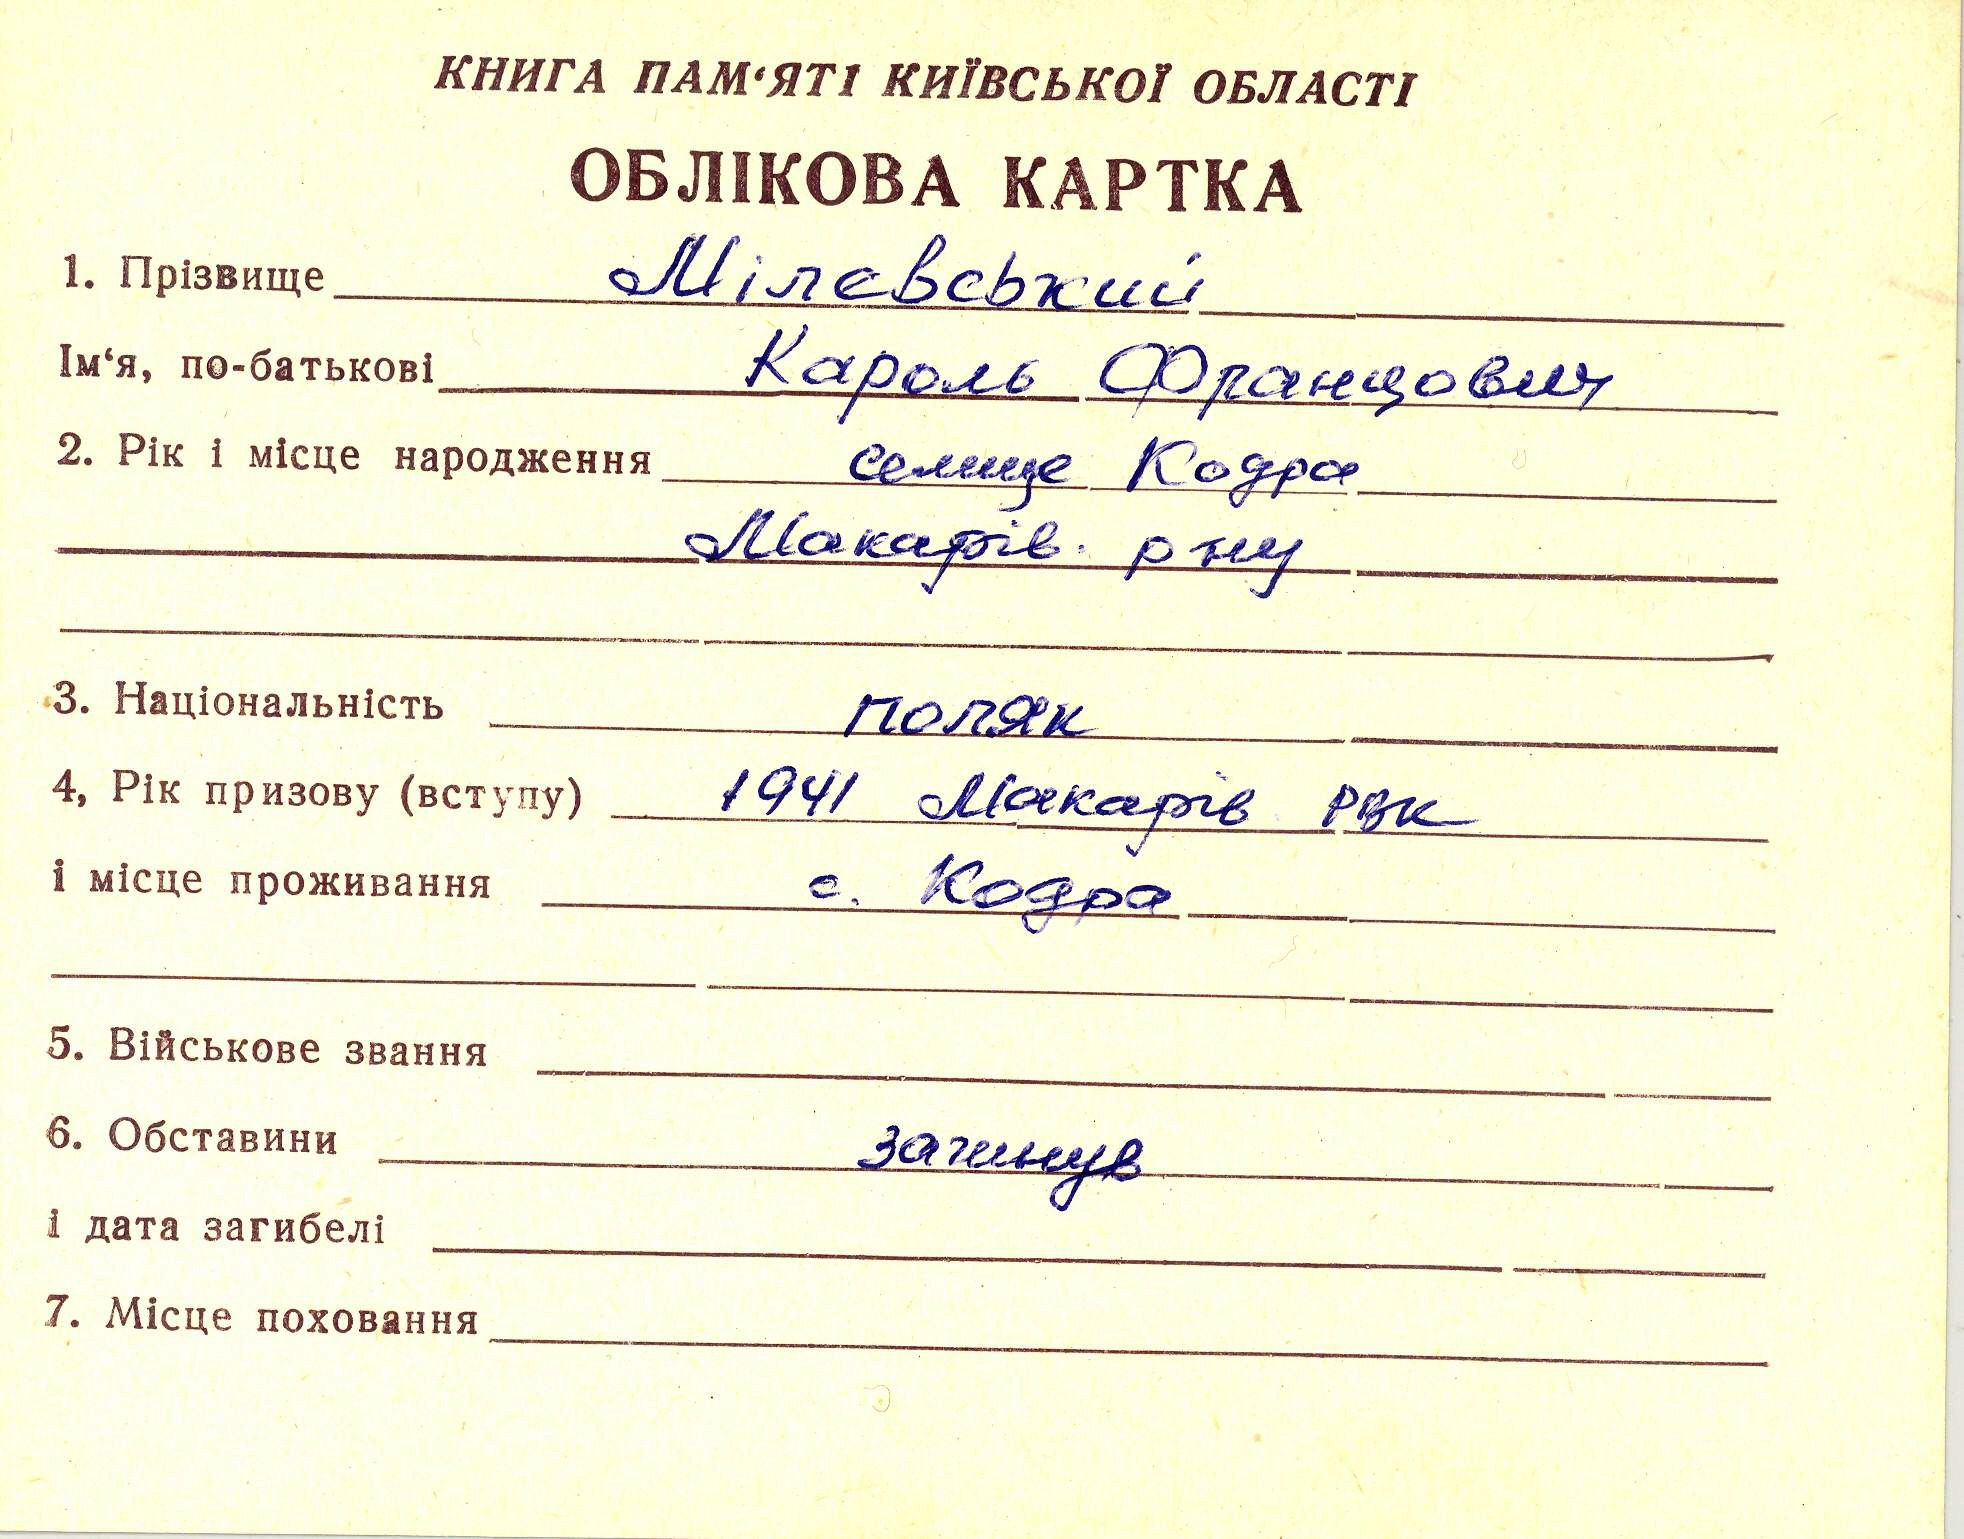 КНИГА ПАМ‘ЯТІ КИЇВСЬКОЇ ОБЛАСТІ
ОБЛІКОВА КАРТКА
1. Прізвище Мілєвський
Ім‘я, по-батькові Кароль Францович
2. Рік і місце народження селище Кодра
Макарів. р-ну
3. Національність поляк
4, Рік призову (вступу) 1941 Макарів РВК
і місце проживання с. Кодра
5. Військове звання
6. Обставини загинув
і дата загибелі
7. Місце поховання